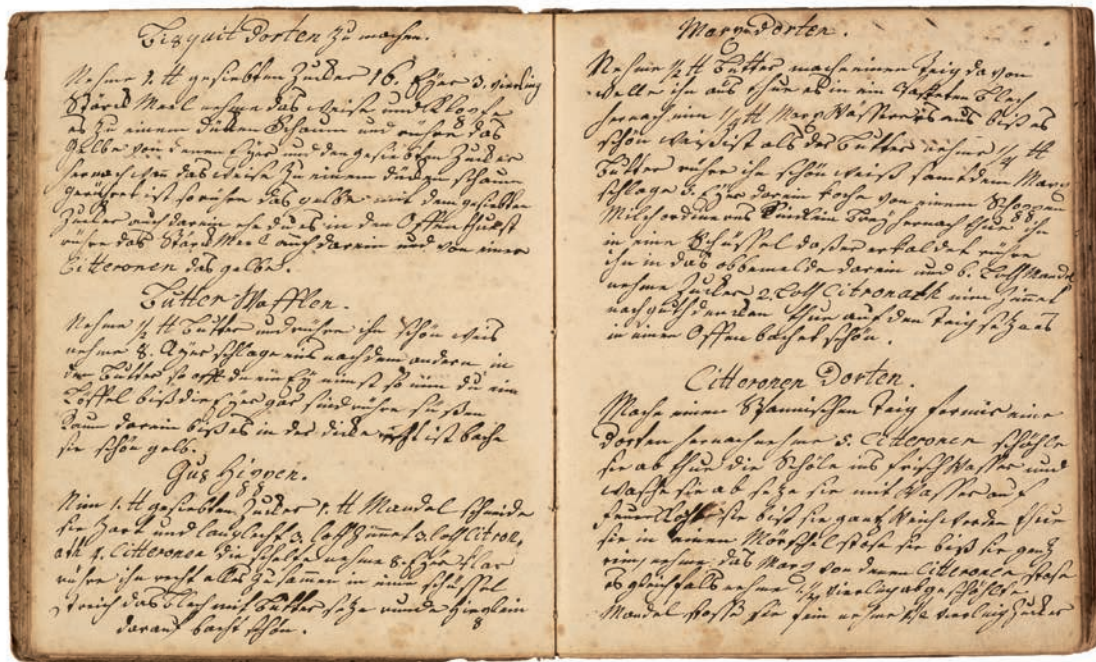 Bisquit Dorten zu machen.
Nehme 1. ℔ gesiebten Zucker 16. Eyer 3. vierling
Stärck Meel nehme das weise und Klopfe
es zu einem dücken Schaum und rühre das
gelbe von denen Eyer und den gesiebten Zucker
hernach wan das weise zu einem dücken schaum
gerühret ist so rühre das gelbe mit dem gesiebten
Zucker auch darein ehe du es in den Offen thust
rühre das Stärck Meel auch darein und von einer
Citteronen das gelbe.
Butter Wafflen.
Nehme ½ ℔ Butter und rühre ihn schön weis
nehme 8. Ayer schlage eins nach dem andern in
den Butter so offt du ein Ey nimst so nim du ein
Löffel biß die Eyer gar sind rühre süßen
Raum darein biß es in der dicke recht ist bache
sie schön gelb.
Gus Hippen.
Nim 1. ℔ gesiebten Zucker 1. ℔ Mandel schneide
sie zart und langlecht 3. loth Zimmet 3. loth Citron,
ath 4. Citteronen die schelfe nehme 8. Eyer klar
rühre ihn recht alles zusammen in eine schüssel
streich das blech mit Butter setze runde
darauf bachs schön.
Marg Dorten.
Nehme ½ ℔ Butter mache einen Teig davon
welle ihn aus thue es in ein Pasteten blech
hernach nim ½ ℔ Marg Wässere es aus biß es
schön weiß ist als der Butter nehme ¼ ℔
Butter rühre ihn schön weiß samt dem Marg
schlage 3. Eyer darein koche von einem Schoppen
Milch Brey hernach thue ihn
in eine Schüssel daß er erkaldet rühre
ihn in das obbemelde darein und 6. Loth Mandel
nehme Zucker 2. Loth Citronath nim Zimmet
nach guthdencken thue auf den Teig setze es
in einen Offen bachs schön.
Citteronen Dorten.
Mache einen Spannischen Teig formir eine
Dorten hernach nehme 5. Citteronen schähle
sie ab thue die Schöle ins frisch Wasser und
wasche sie ab setze sie mit Wasser auf
feuer sie biß sie gantz weich werden thue
sie in einen Mörschel stose sie biß sie gantz
nehme das Marg von denen Citteronen stose
es nehme ½ vierling abgeschöhlte
Mandel stoße sie fein nehme vierling Zucker